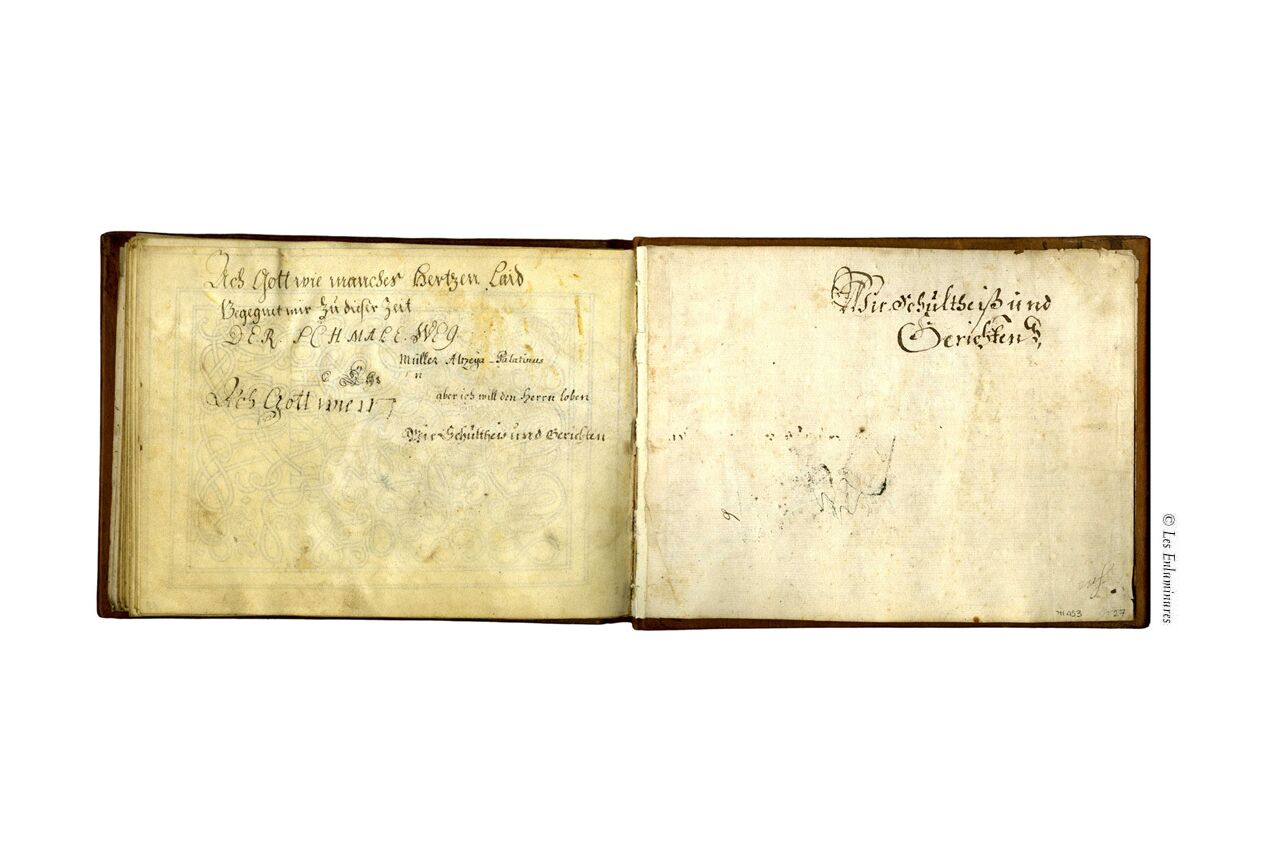 Ach Gott wie manches Hertzen Laid
Begegnet mir Zu dieser Zeit
DER SCHMALE WEG
Müller Altzeya-Palatinus
n
Ach Gott wie
aber ich will den Herrn loben
Wir Schültheis und Gerichten
Wir Schültheiß und
Gerichten
9
27
© Les Enluminures